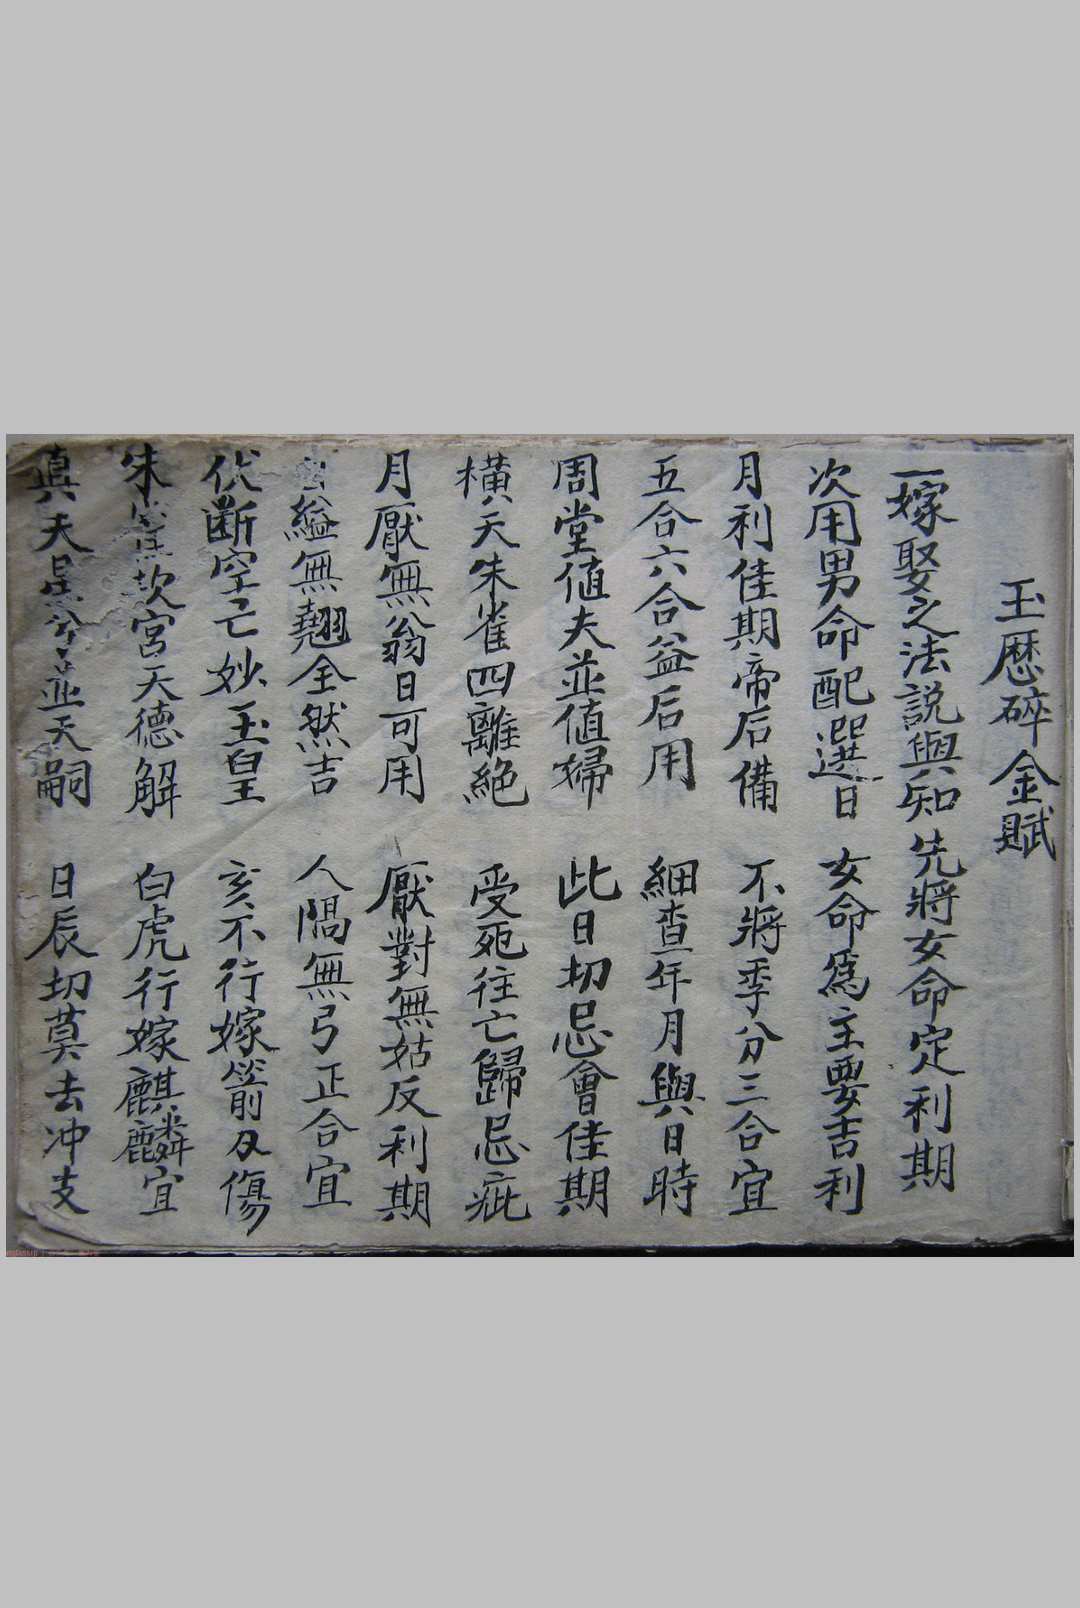 玉歷碎金賦
一嫁娶之法說與知先將女命定利期
次用男命配選日 女命為主要吉利
月利佳期帝后備 不將季分三合宜
五合六合益后用 細查年月與日時
周堂值夫並值婦 此日切忌會佳期
橫天朱雀四離絕 受死往亡歸忌疵
月厭無翁日可用 厭對無姑反利期
絕無翹全然吉 人隔無弓正合宜
伏断空亡妙玉皇 亥不行嫁箭刄傷
朱雀坎宮天德解 白虎行嫁麒麟宜
真夫星兮並天嗣 日辰切莫去冲支